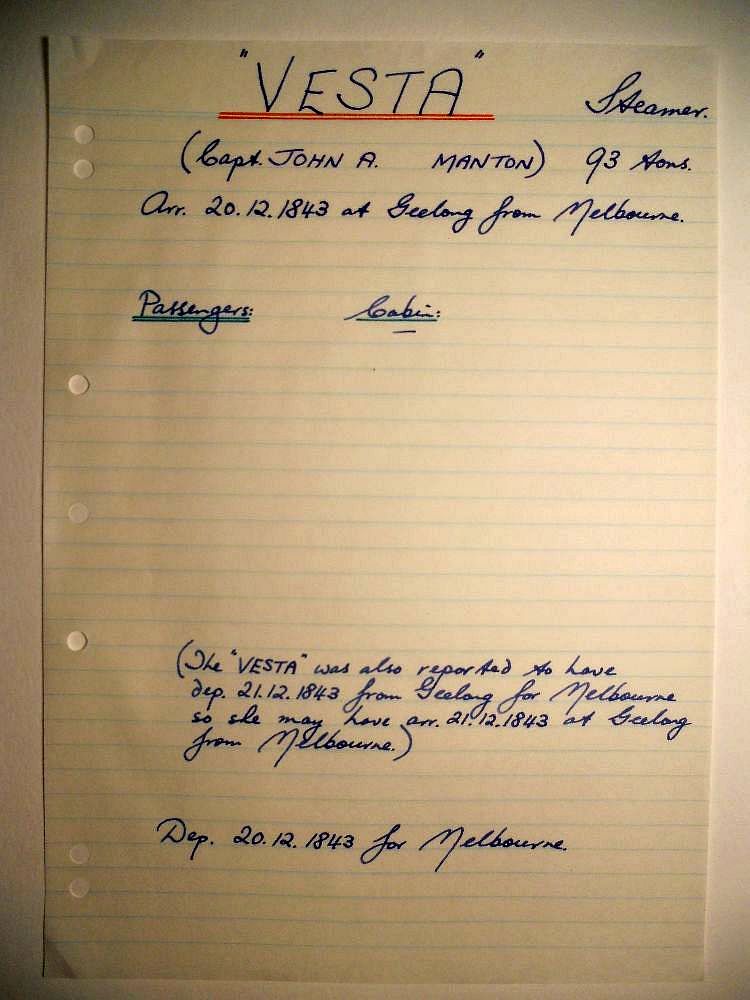 "VESTA" Steamer.
(Capt. JOHN A. MANTON) 93 tons.
Arr. 20.12.1843 at Geelong from Melbourne.
Passengers: Cabin:
(The "VESTA" was also reported to have
dep. 21.12.1843 from Geelong for Melbourne
so she may have arr. 21.12.1843 at Geelong
from Melbourne.)
Dep. 20.12.1843 for Melbourne.